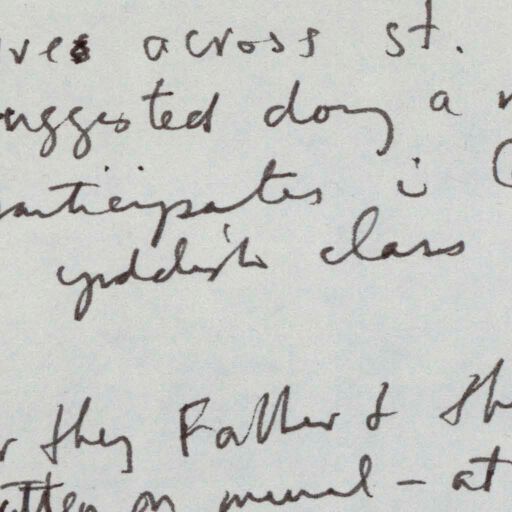 ives across st.
suggested doing a
participates in
yiddish class
they Father & the
written on mural – at